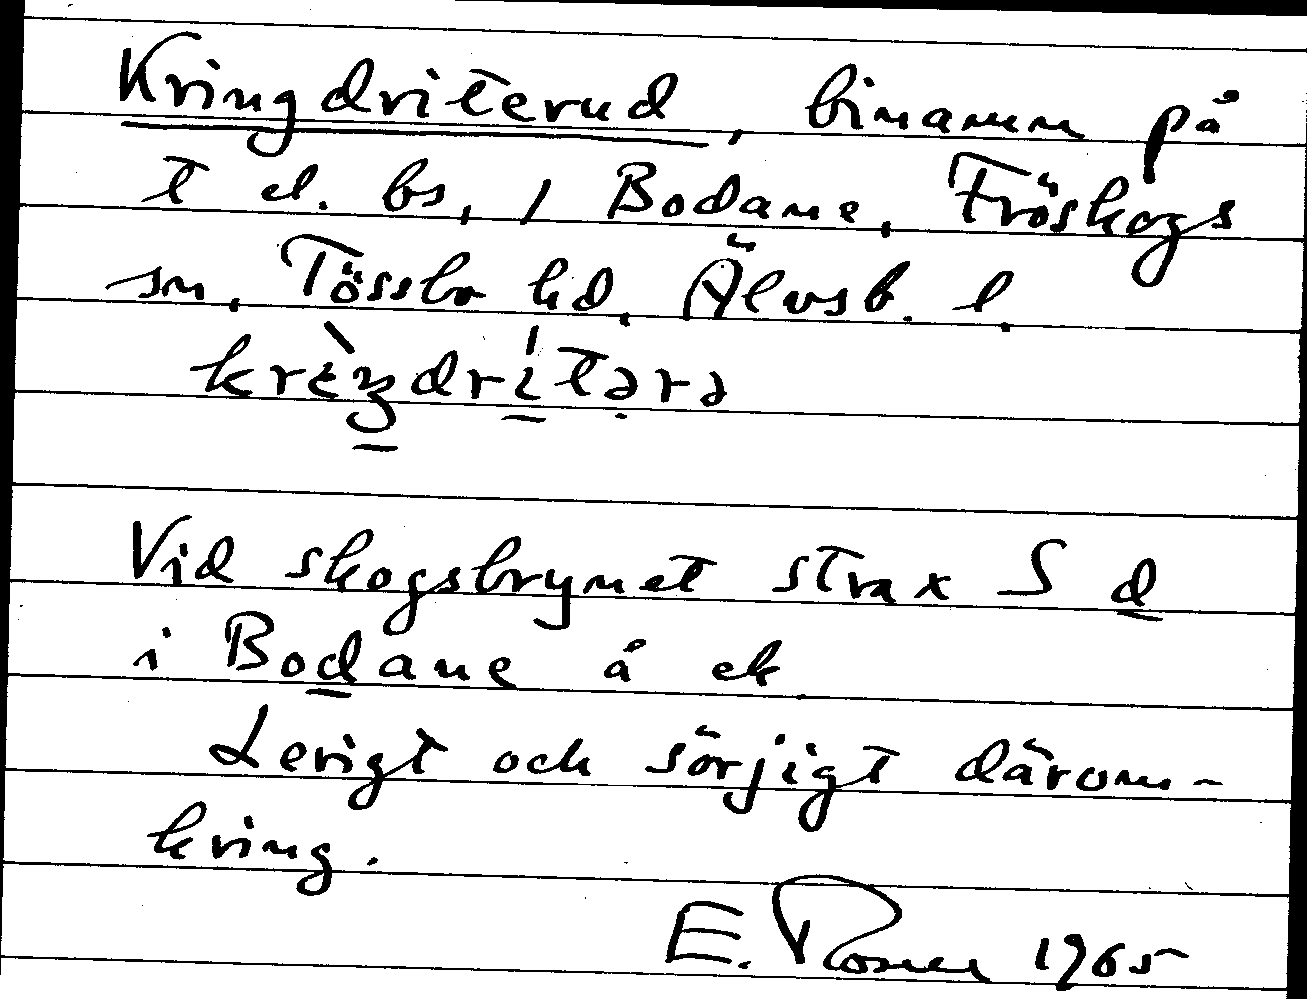 Kringdriterud, binamn på
t el. bs, i Bodane, Fröskogs
sn, Tössbo hd, Älvsb. l.
Vid skogsbrynet strax S d
i Bodane å ek.
Lerigt och sörjigt därom-
kring.
E. Rosen 1965